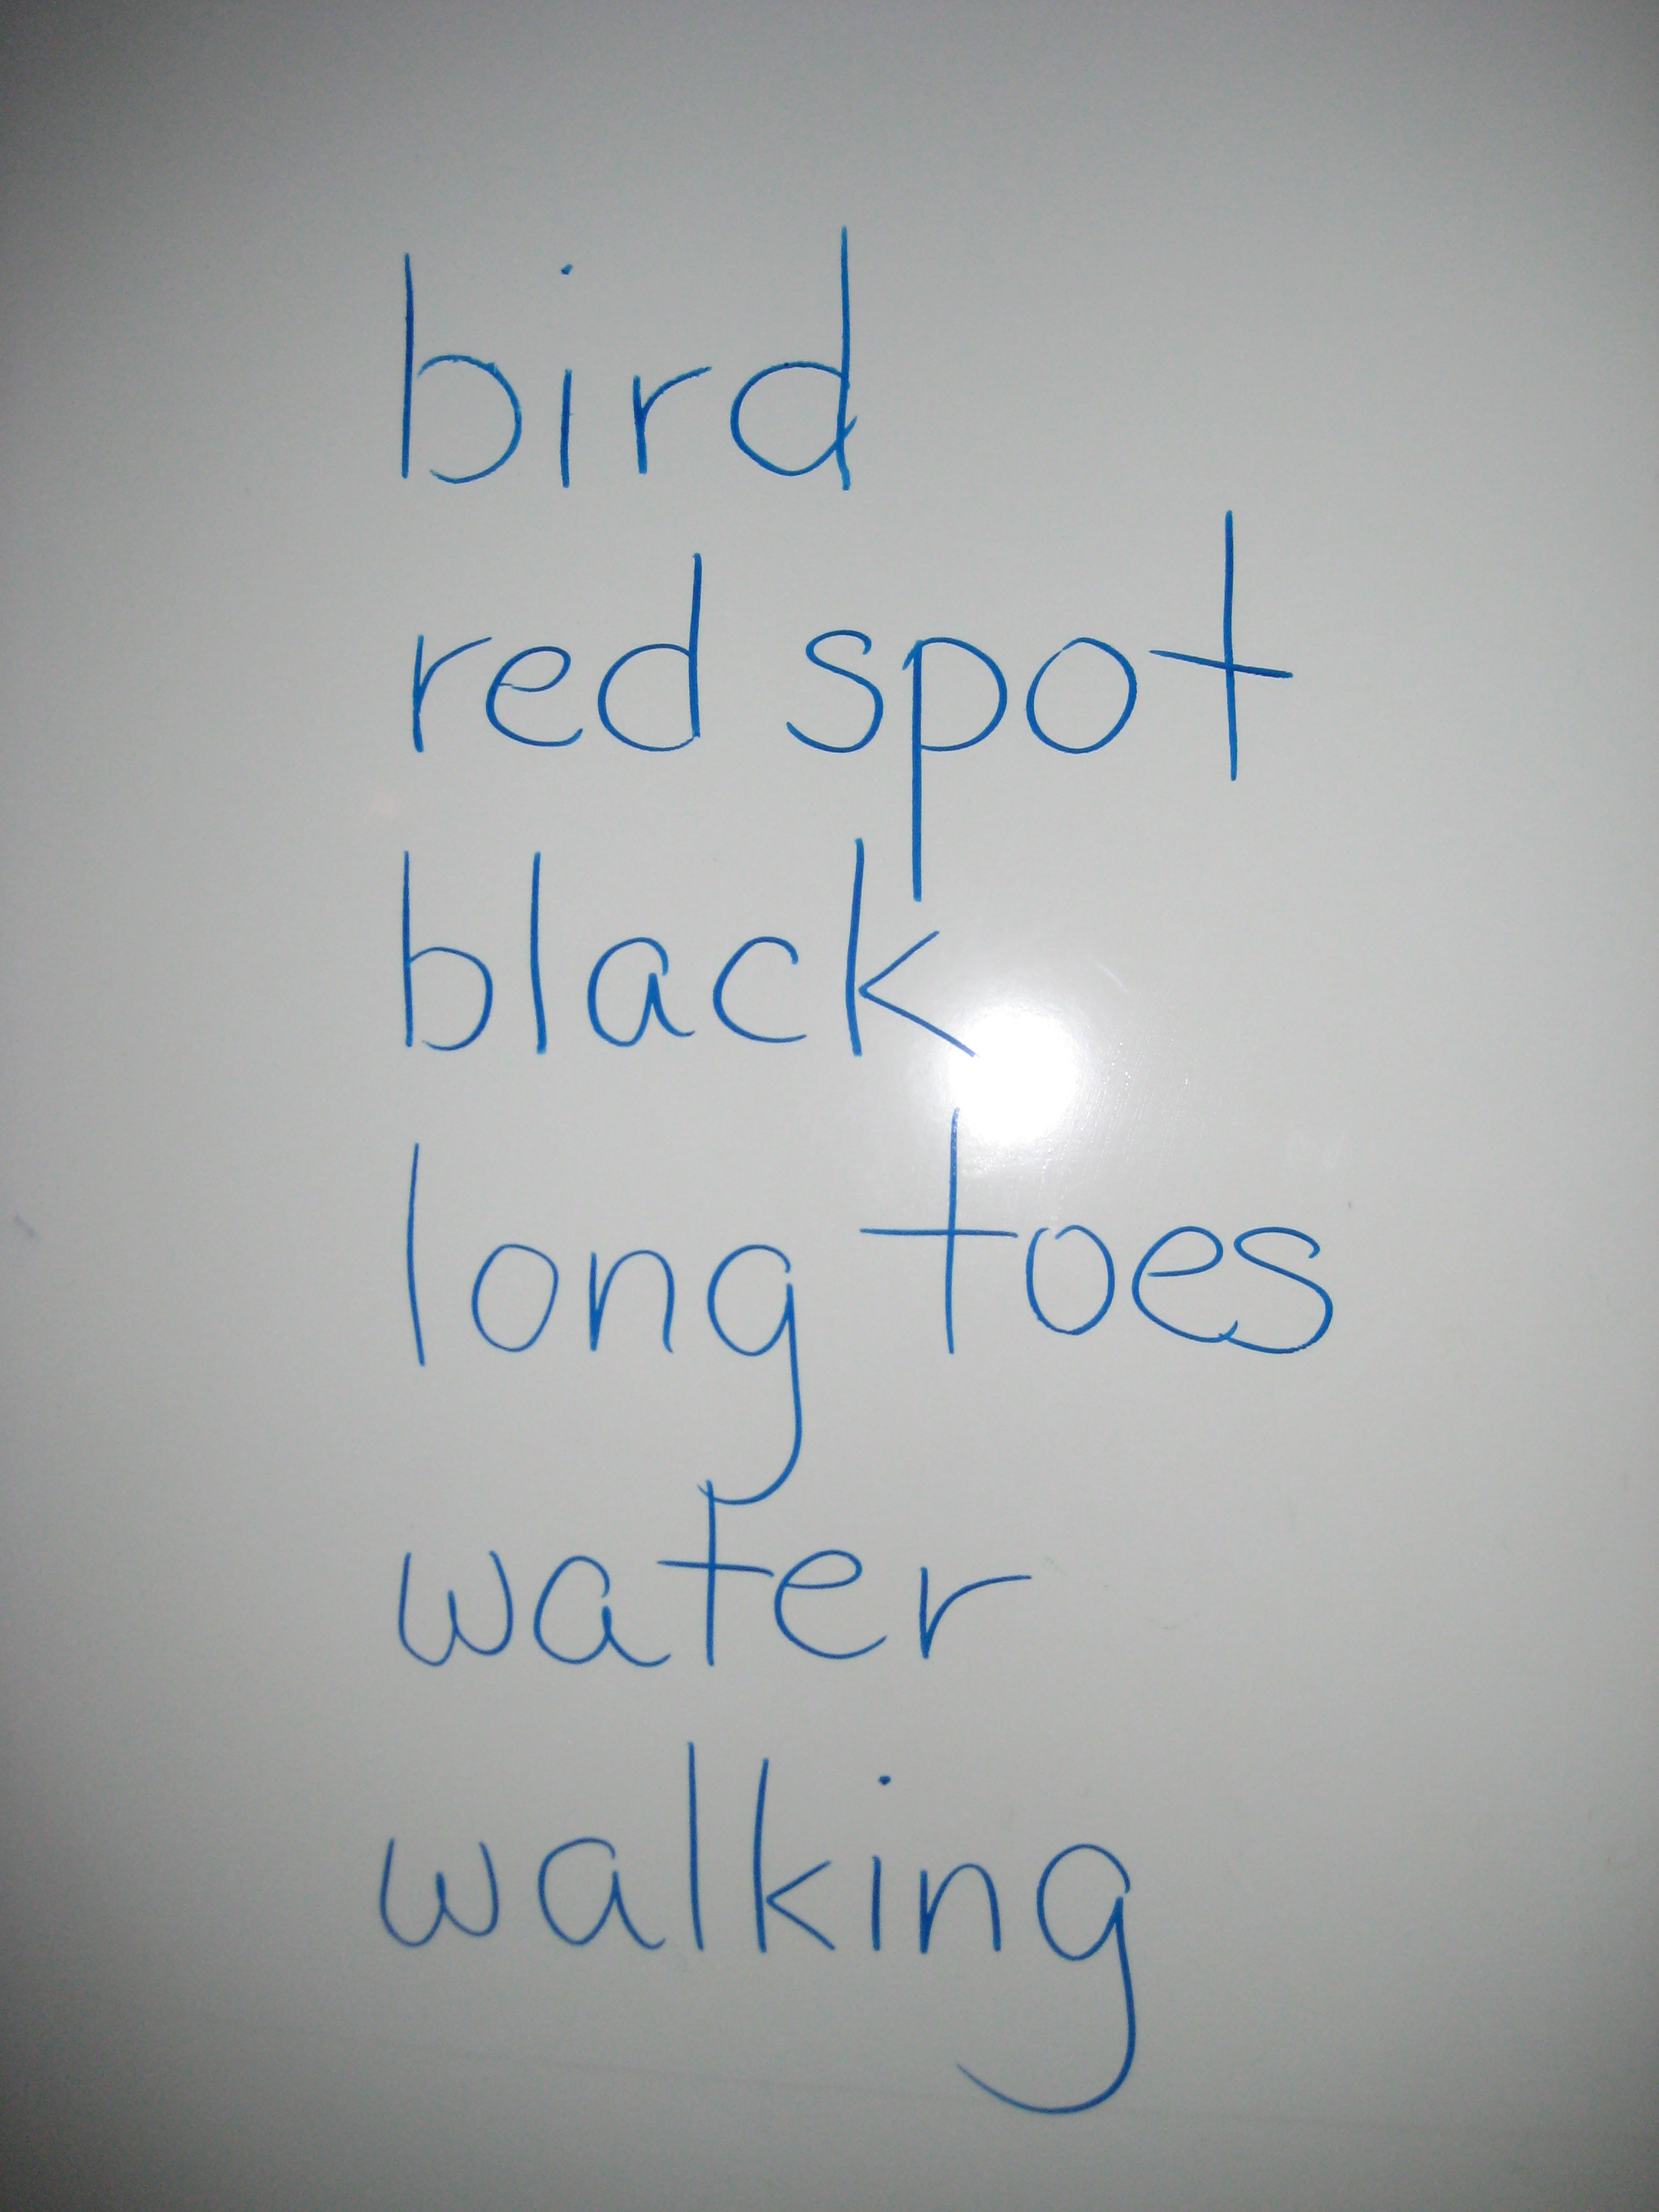 bird
red spot
black
long toes
water
walking